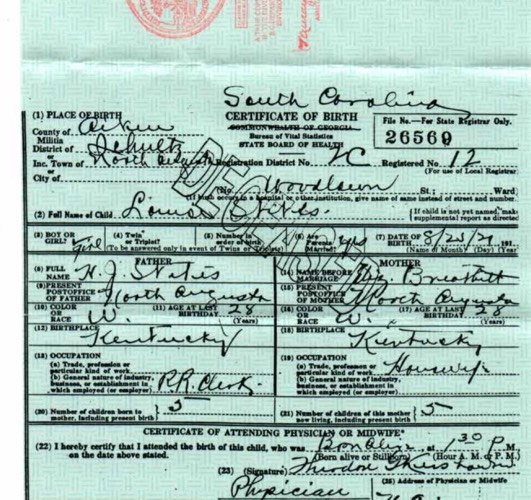 South Carolina
(1) PLACE OF BIRTH CERTIFICATE OF BIRTH File No.—For State Registrar Only.
County of Aiken COMMONWEALTH OF GEORGIA 26569
Militia Bureau of Vital Statistics
District of Schultz STATE BOARD OF HEALTH
Inc. Town of North Augusta Registration District No. 2C Registered No. 12
City of (For use of Local Registrar
(No. Woodlawn St.; Ward)
(If birth occurs in a hospital or other institution, give name of same instead of street and number.
(2) Full Name of Child Louise If child is not yet named, make
supplemental report as directed
(3) BOY OR GIRL? Girl (4) Twin or Triplet? (5) Number in order of birth (6) Are Parents Married? yes (7) DATE OF BIRTH 8/25/2 191
(To be answered only in event of Twins or Triplets) (Name of Month) (Day) (Year)
FATHER MOTHER
(8) FULL NAME H. J. (14) NAME BEFORE MARRIAGE
(9) PRESENT POSTOFFICE OF FATHER North Augusta (15) PRESENT POSTOFFICE OF MOTHER North Augusta
(10) COLOR OR RACE W. (11) AGE AT LAST BIRTHDAY 28 (Years) (16) COLOR OR RACE W. (17) AGE AT LAST BIRTHDAY 28 (Years)
(12) BIRTHPLACE Kentucky (18) BIRTHPLACE Kentucky
(13) OCCUPATION (19) OCCUPATION
(a) Trade, profession or particular kind of work (a) Trade, profession or particular kind of work Housewife
(b) General nature of industry, business, or establishment in which employed (or employer) R.R. Clerk. (b) General nature of industry, business, or establishment in which employed (or employer)
(20) Number of children born to mother, including present birth 5 (21) Number of children of this mother now living, including present birth 5
CERTIFICATE OF ATTENDING PHYSICIAN OR MIDWIFE*
(22) I hereby certify that I attended the birth of this child, who was Born Alive at 1 30 P. M.
on the date above stated. (Born alive or Stillborn) (Hour A. M. or P. M.)
(23) (Signature)
Physician (25) Address of Physician or Midwife